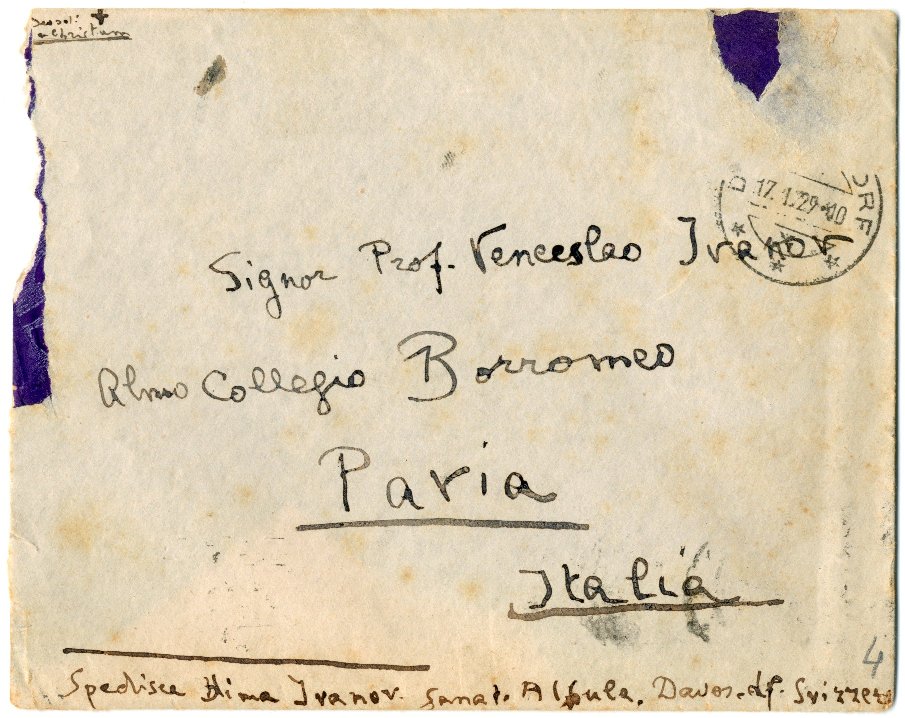 Christum
D ORF
17.1.29-10
Signor Prof. Venceslao Ivanov
Almo Collegio Borromeo
Pavia
Italia
4
Spedisce Dima Ivanov. Sanat. Albula. Davos-df. Svizzera